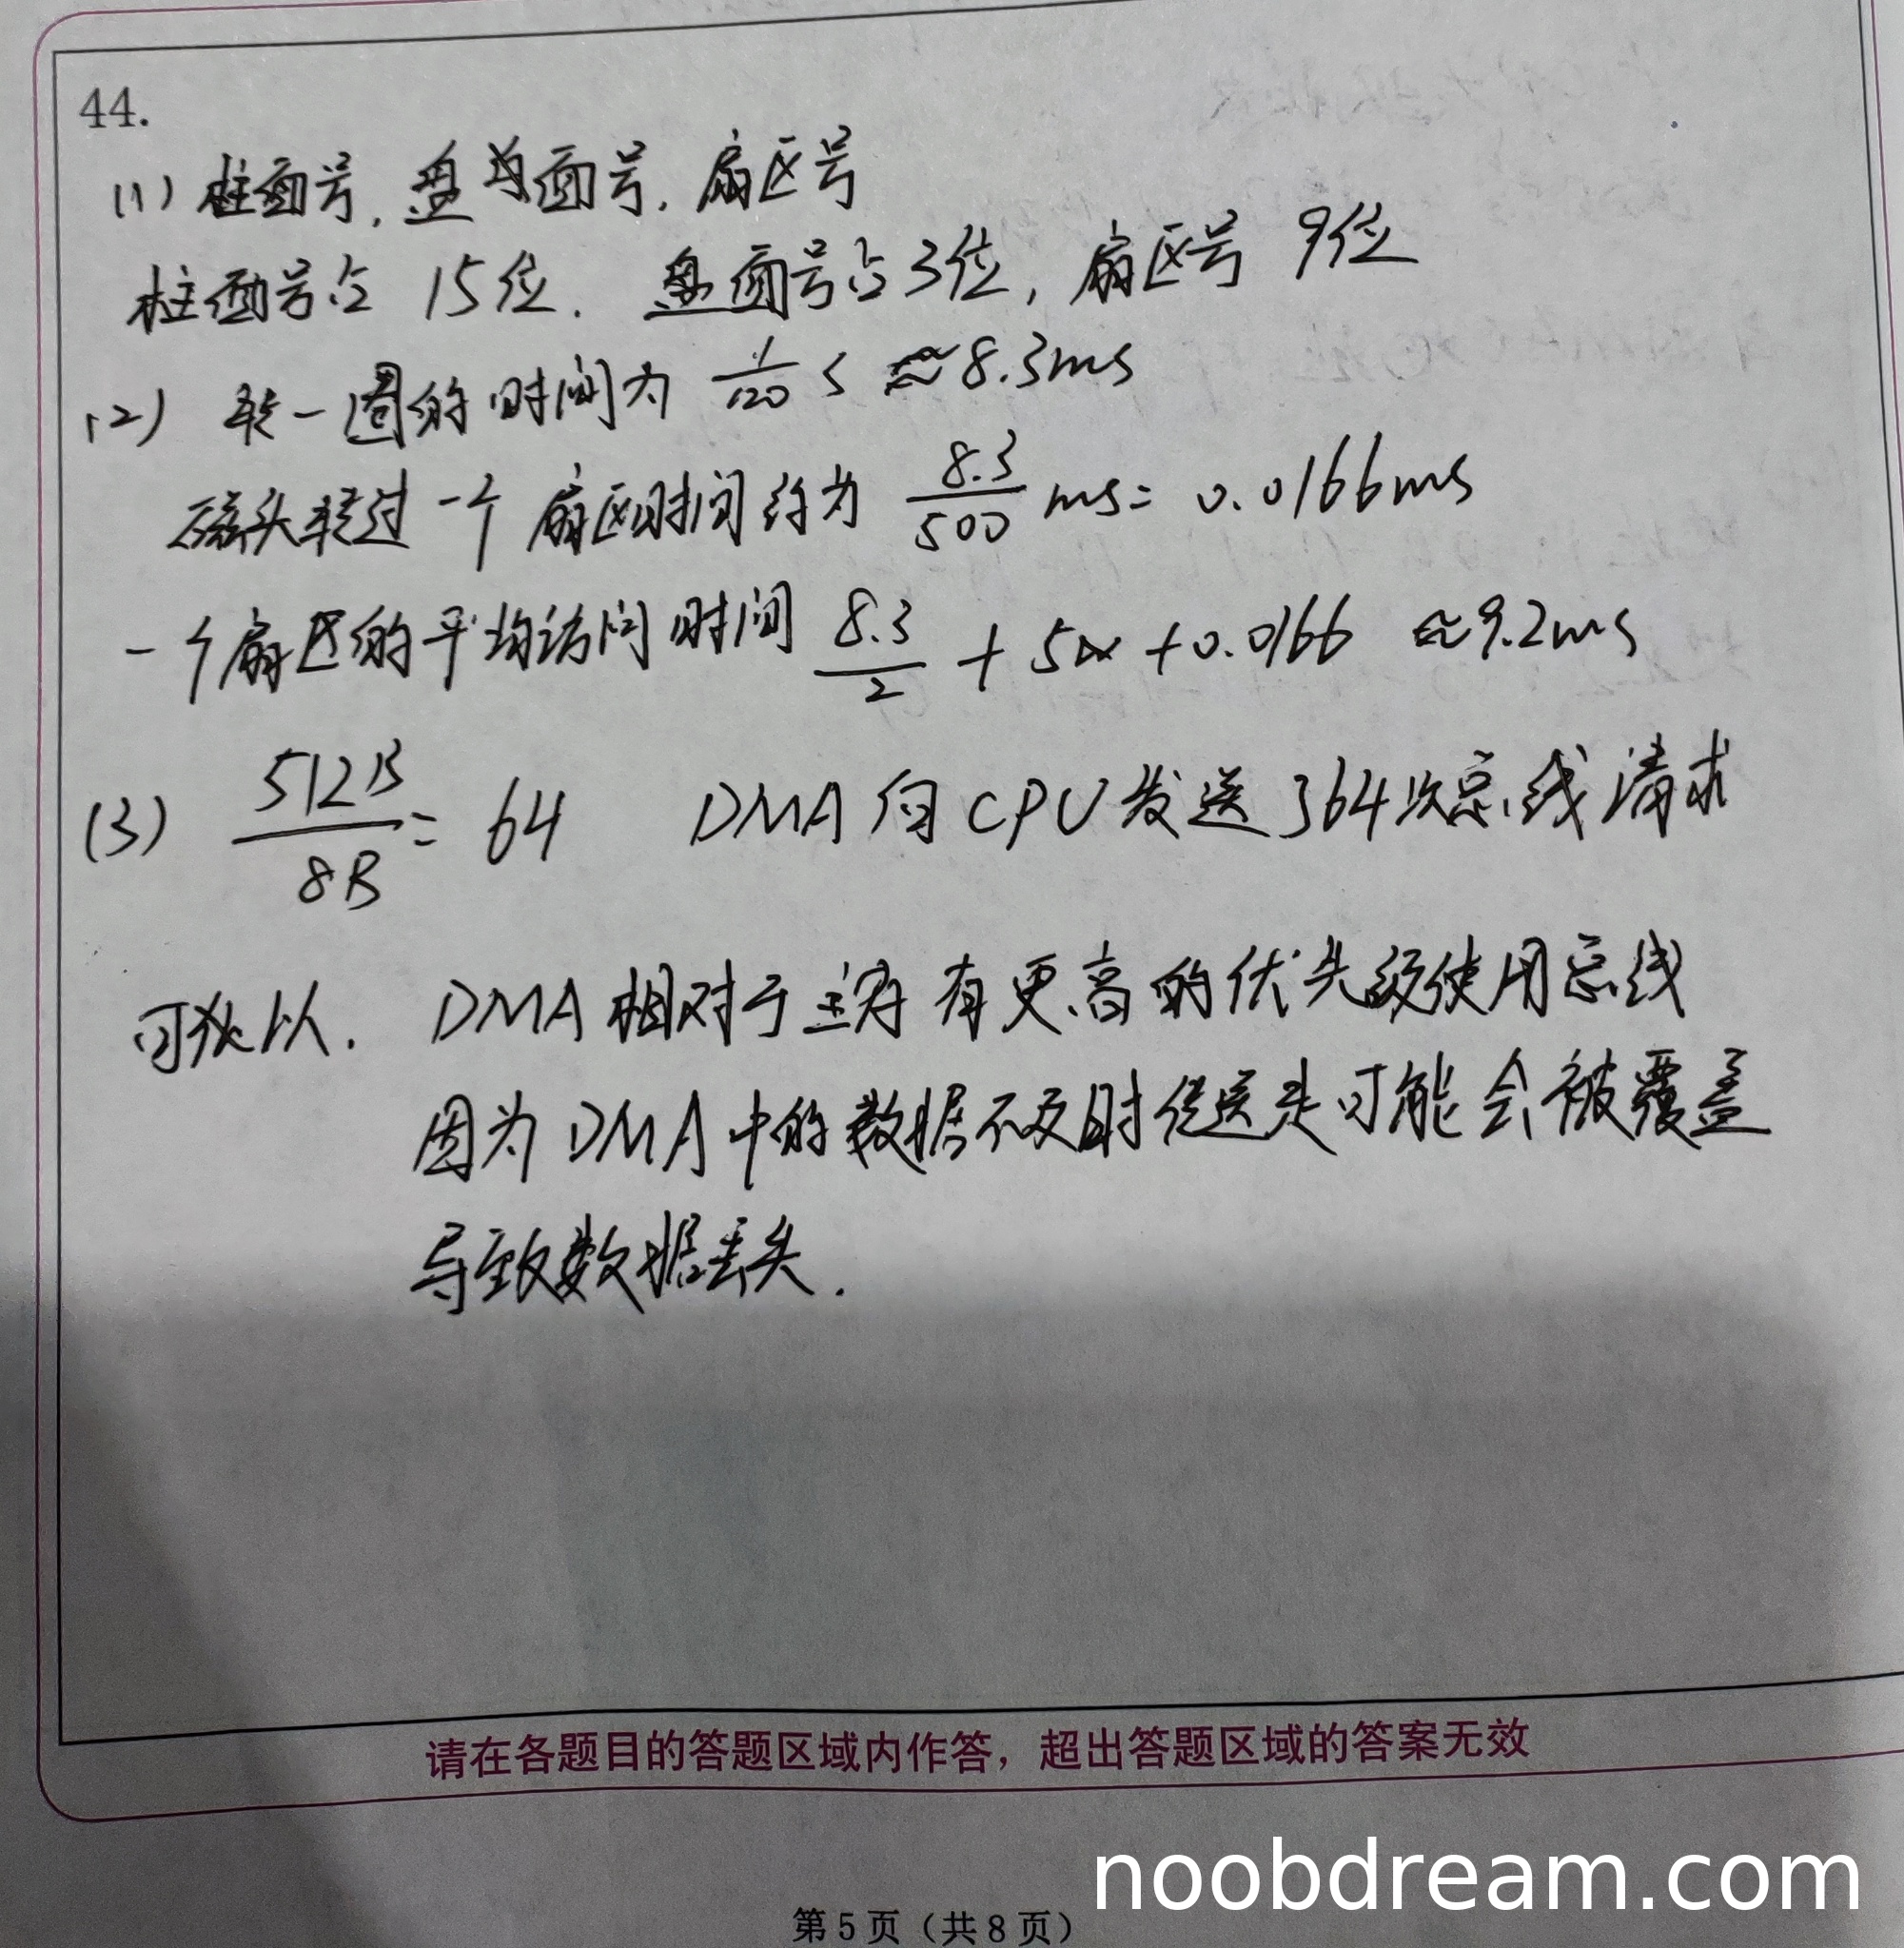 44.
(1) 柱面号, 盘面号, 扇区号
柱面号占 15位. 盘面号占3位, 扇区号 9位
(2) 转一圈的时间为 1/120 s ≈8.3ms
磁头转过一个扇区时间约为 8.3/500 ms= 0.0166ms
一个扇区的平均访问时间 8.3/2 + 5 + 0.0166 ≈9.2ms
(3) 512B/8B = 64 DMA向CPU发送了64次总线请求
可以. DMA相对于主存有更高的优先级使用总线
因为DMA中的数据不及时传送走可能会被覆盖
导致数据丢失.
请在各题目的答题区域内作答，超出答题区域的答案无效
第5页（共8页）
noobdream.com